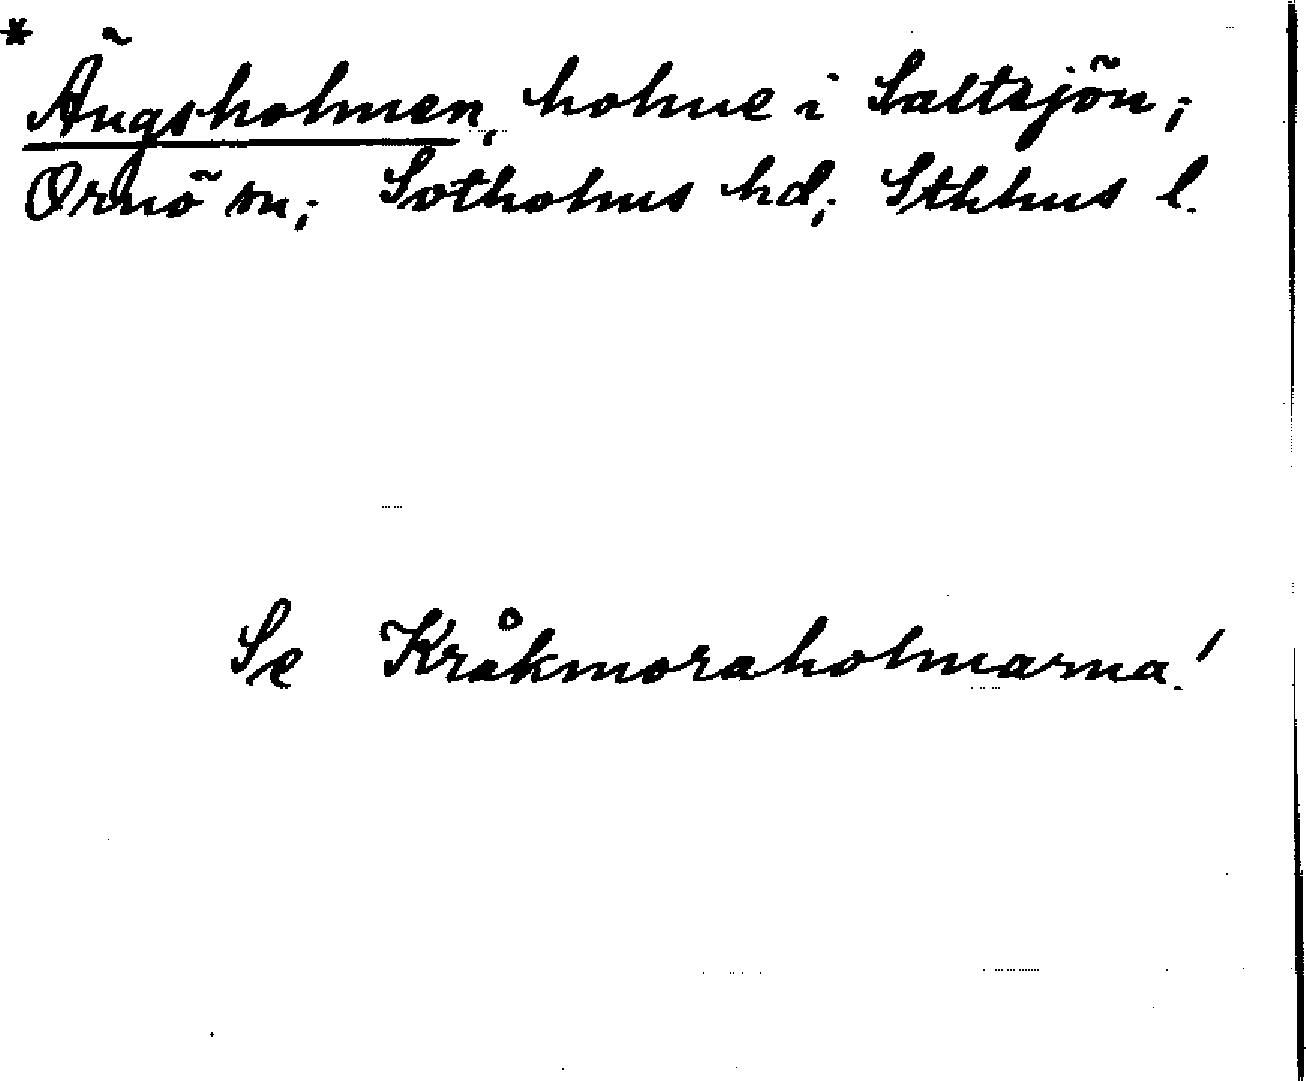 * Ängsholmen, holme i Saltsjön;
Ornö sn; Sotholms hd; Sthlms l.
Se Kråkmoraholmarna!